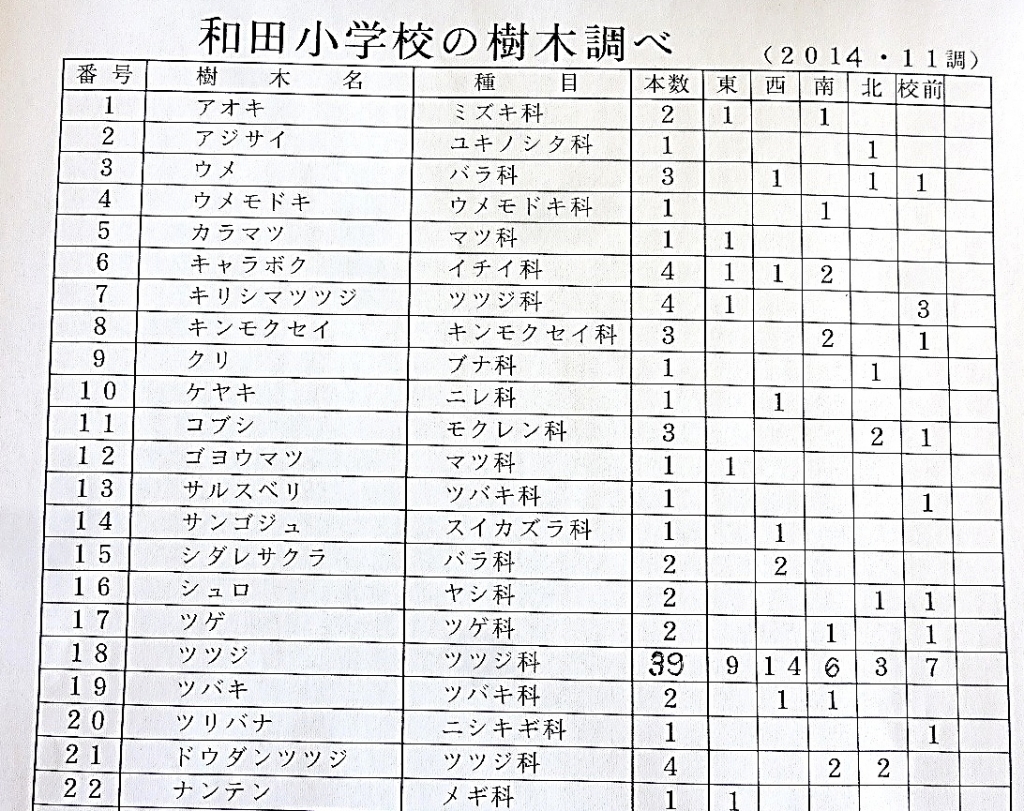 和田小学校の樹木調べ （２０１４・１１調）
番号 樹木名 種目 本数 東 西 南 北 校前
１ アオキ ミズキ科 2 1 1
２ アジサイ ユキノシタ科 1 1
３ ウメ バラ科 3 1 1 1
４ ウメモドキ ウメモドキ科 1 1
５ カラマツ マツ科 1 1
６ キャラボク イチイ科 4 1 1 2
７ キリシマツツジ ツツジ科 4 1 3
８ キンモクセイ キンモクセイ科 3 2 1
９ クリ ブナ科 1 1
１０ ケヤキ ニレ科 1 1
１１ コブシ モクレン科 3 2 1
１２ ゴヨウマツ マツ科 1 1
１３ サルスベリ ツバキ科 1 1
１４ サンゴジュ スイカズラ科 1 1
１５ シダレサクラ バラ科 2 2
１６ シュロ ヤシ科 2 1 1
１７ ツゲ ツゲ科 2 1 1
１８ ツツジ ツツジ科 39 9 14 6 3 7
１９ ツバキ ツバキ科 2 1 1
２０ ツリバナ ニシキギ科 1 1
２１ ドウダンツツジ ツツジ科 4 2 2
２２ ナンテン メギ科 1 1